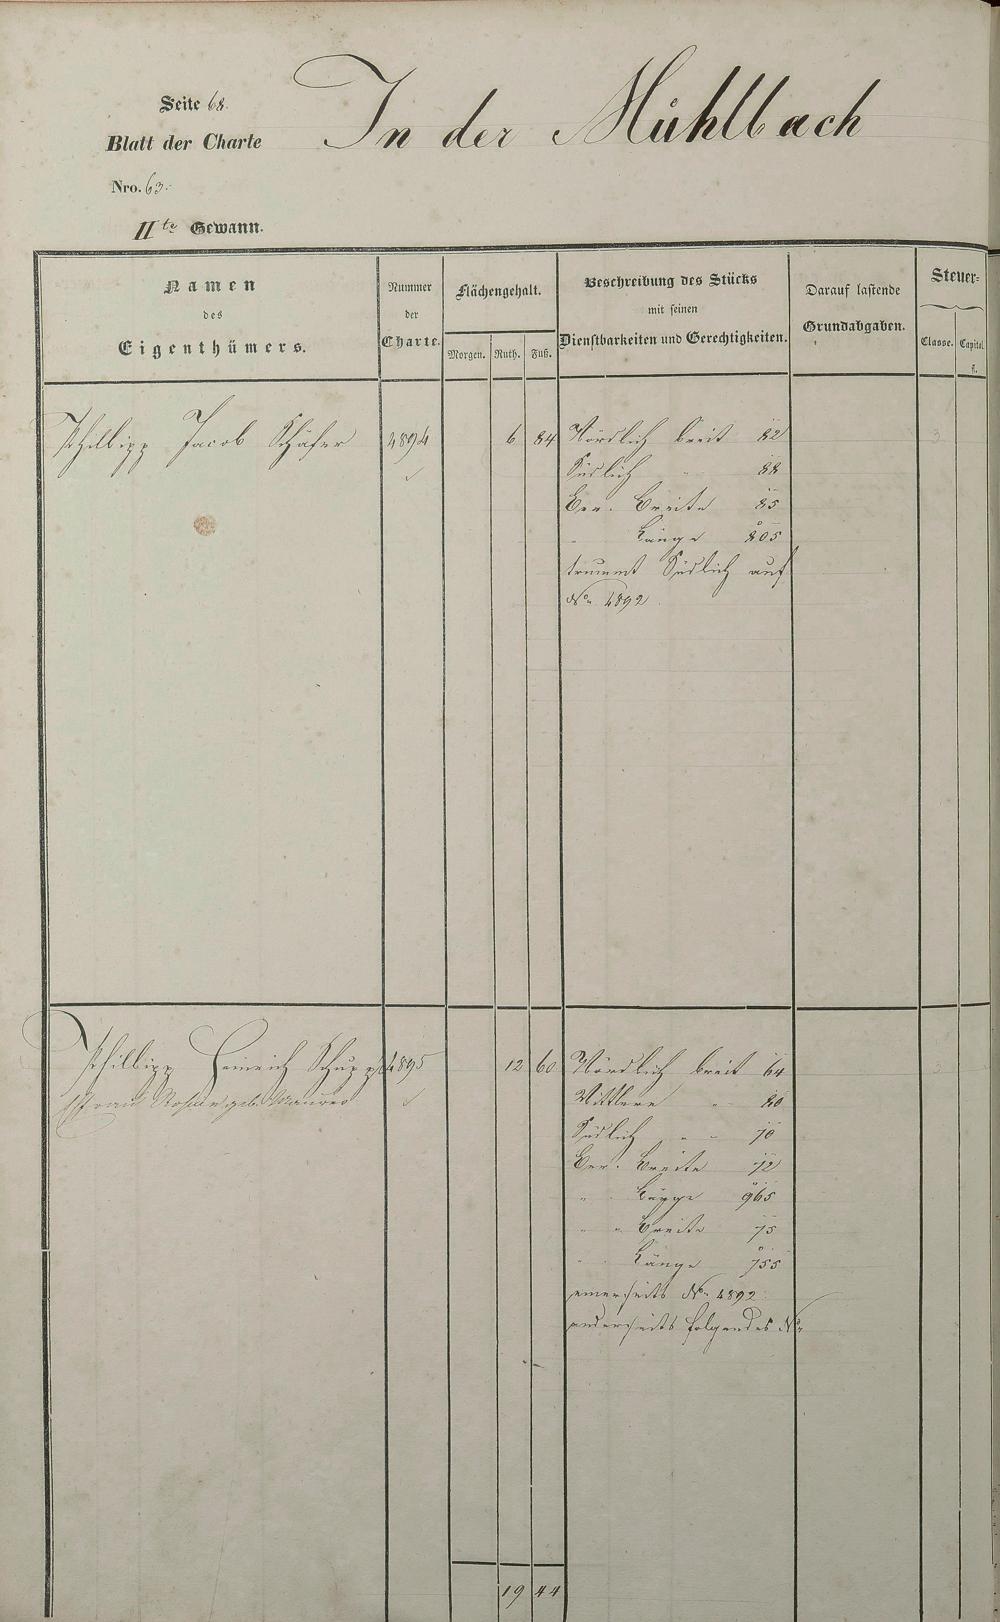 Seite 68.
In der Mühlbach
Blatt der Charte
Nro. 63.
IIte Gewann.
Namen
des
Eigenthümers.
Nummer
der
Charte.
Flächengehalt.
Morgen. Ruth. Fuß.
Beschreibung des Stücks
mit seinen
Dienstbarkeiten und Gerechtigkeiten.
Darauf lastende
Grundabgaben.
Steuer-
Classe. Capital.
fl.
Philipp Jacob Schäfer 4894 6 84 Nördlich breit 82 3
Südlich " 88
Ber. Breite 85
" Länge 805
Südlich auf
No. 4892
Philipp Heinrich Schupp 4895 12 60 Nördlich breit 64 3
Mittlere " 80
Südlich " " 70
Ber. Breite 72
" Länge 965
" " Breite 75
" Länge 755
einerseits No. 4892
anderseits folgendes No.
19 44